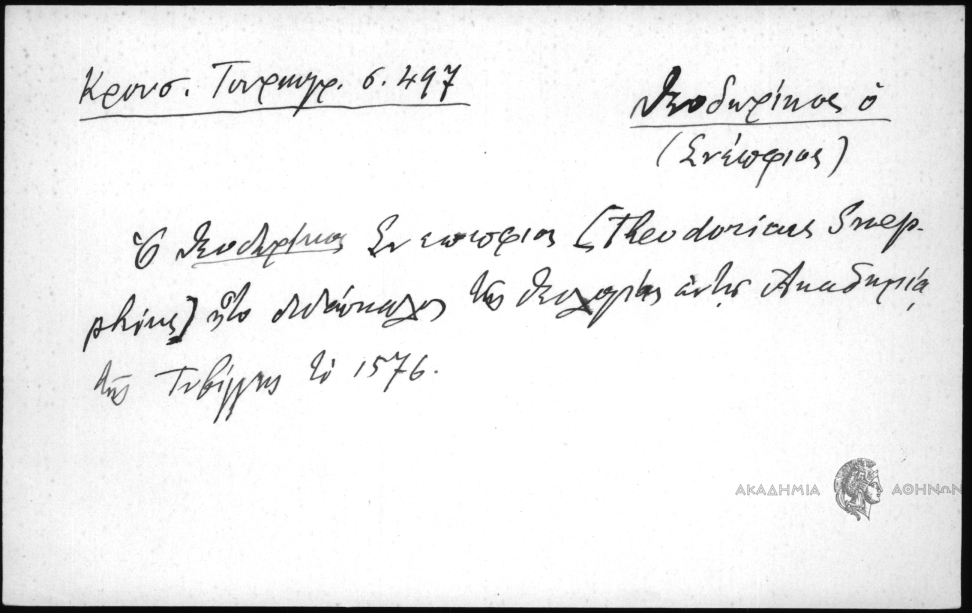 Κρουσ. Τουρκογρ. σ. 497
Θεοδωρίκος ὁ
(Σνέπφιος)
Ὁ Θεοδωρίκος Σνέπφιος (Theodoricus Snep-
phius) ἦτο διδάσκαλος τῆς θεολογίας ἐν τῇ Ἀκαδημίᾳ
τῆς Τυβίγγης τῷ 1576.
ΑΚΑΔΗΜΙΑ ΑΘΗΝΩΝ